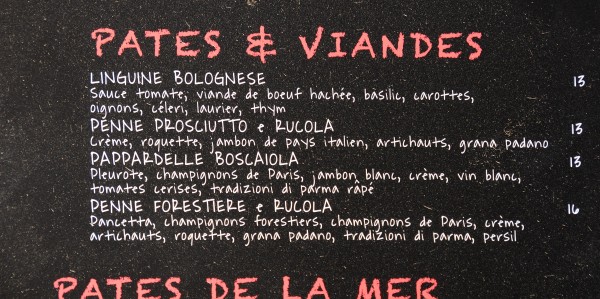 PATES & VIANDES
LINGUINE BOLOGNESE 13
Sauce tomate, viande de boeuf hachée, basilic, carottes,
oignons, céleri, laurier, thym
PENNE PROSCIUTTO e RUCOLA 13
Crème, roquette, jambon de pays italien, artichauts, grana padano
PAPPARDELLE BOSCAIOLA 13
Pleurote, champignons de Paris, jambon blanc, crème, vin blanc,
tomates cerises, tradizioni di parma râpé
PENNE FORESTIERE e RUCOLA 16
Pancetta, champignons forestiers, champignons de Paris, crème,
artichauts, roquette, grana padano, tradizoni di parma, persil
PATES DE LA MER